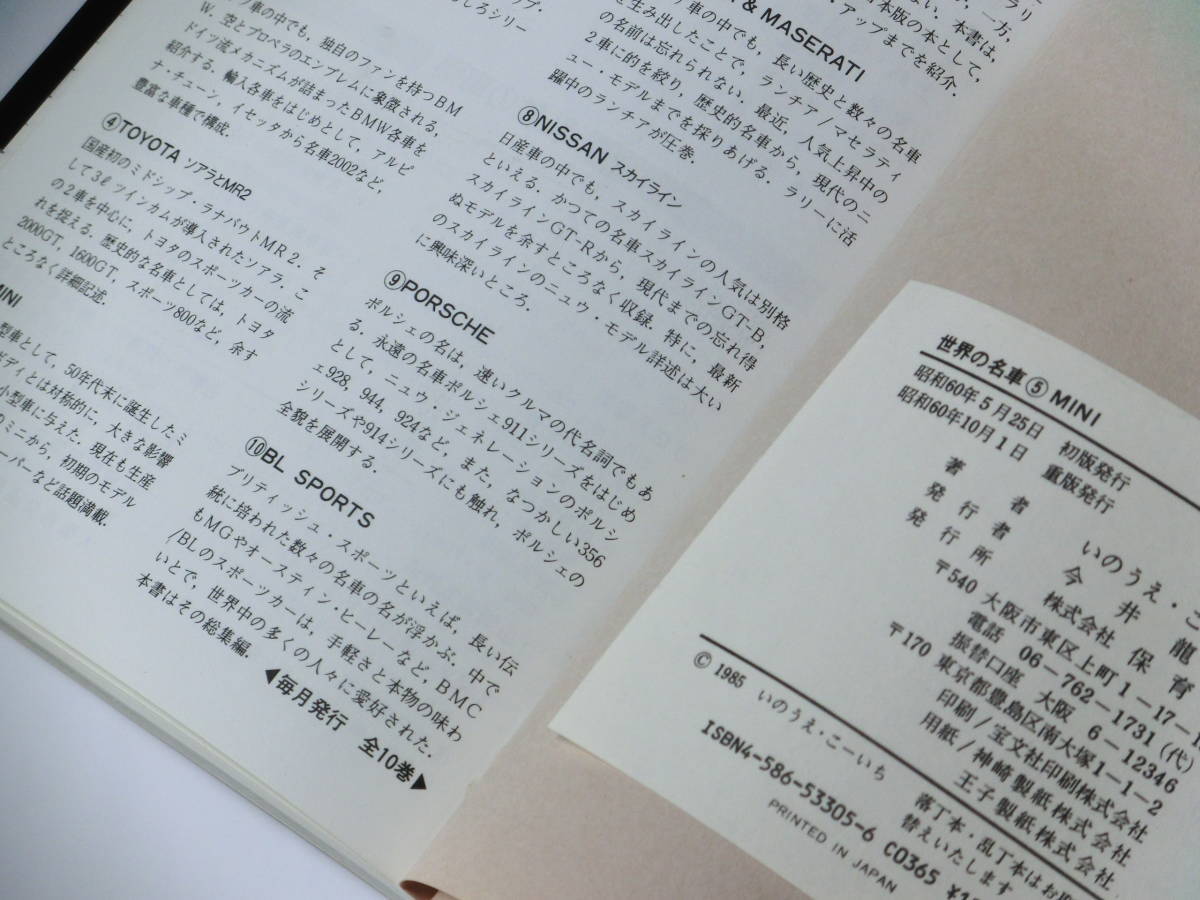 しろシリー
車の中でも，独自のファンを持つBM
W．空とプロペラのエンブレムに象徴される，
ドイツ流メカニズムが詰まったBMW各車を
紹介する．輸入各車をはじめとして，アルピ
ナ・チェーン，イセッタから名車2002など，
豊富な車種で構成．
④TOYOTA ソアラとMR2
国産初のミドシップ・ラナバウトMR2．そ
して3ℓツインカムが導入されたソアラ．こ
の2車を中心に，トヨタのスポーツカーの流
れを捉える．歴史的な名車としては，トヨタ
2000GT，1600GT，スポーツ800など，余す
ところなく詳細記述．
MINI
型車として，50年代末に誕生したミ
ボディとは対称的に，大きな影響
小型車に与えた．現在も生産
のミニから，初期のモデル
ーパーなど話題満載．
一方，
ない．本書は，
日本版の本として，
・アップまでを紹介．
& MASERATI
車の中でも，長い歴史と数々の名車
を生み出したことで，ランチア/マセラティ
の名前は忘れられない．最近，人気上昇中の
2車に的を絞り，歴史的名車から，現代のニ
ュー・モデルまでを採りあげる．ラリーに活
躍中のランチアが圧巻．
⑧NISSAN スカイライン
日産車の中でも，スカイラインの人気は別格
といえる．かつての名車スカイラインGT-B，
スカイラインGT-Rから，現代までの忘れ得
ぬモデルを余すところなく収録．特に，最新
のスカイラインのニュウ・モデル詳述は大い
に興味深いところ．
⑨PORSCHE
ポルシェの名は，速いクルマの代名詞でもあ
る．永遠の名車ポルシェ911シリーズをはじめ
として，ニュウ・ジェネレーションのポルシ
ェ928，944，924など，また，なつかしい356
シリーズや914シリーズにも触れ，ポルシェの
全貌を展開する．
⑩BL SPORTS
ブリティッシュ・スポーツといえば，長い伝
統に培われた数々の名車の名が浮かぶ．中で
もMGやオースティン・ヒーレーなど，BMC
/BLのスポーツカーは，手軽さと本物の味わ
いとで，世界中の多くの人々に愛好された．
本書はその総集編．
◀毎月発行 全10巻▶
世界の名車⑤MINI
昭和60年5月25日 初版発行
昭和60年10月1日 重版発行
著者 いのうえ・こ
発行者 今井龍
発行所 株式会社 保育
〒540 大阪市東区上町1-17-
電話 06-762-1731(代)
振替口座 大阪 6-12346
〒170 東京都豊島区南大塚1-1-2
印刷/宝文社印刷株式会社
用紙/神崎製紙株式会社
王子製紙株式会社
© 1985 いのうえ・こーいち
落丁本・乱丁本はお
替えいたします
ISBN4-586-53305-6 C0365
PRINTED IN JAPAN